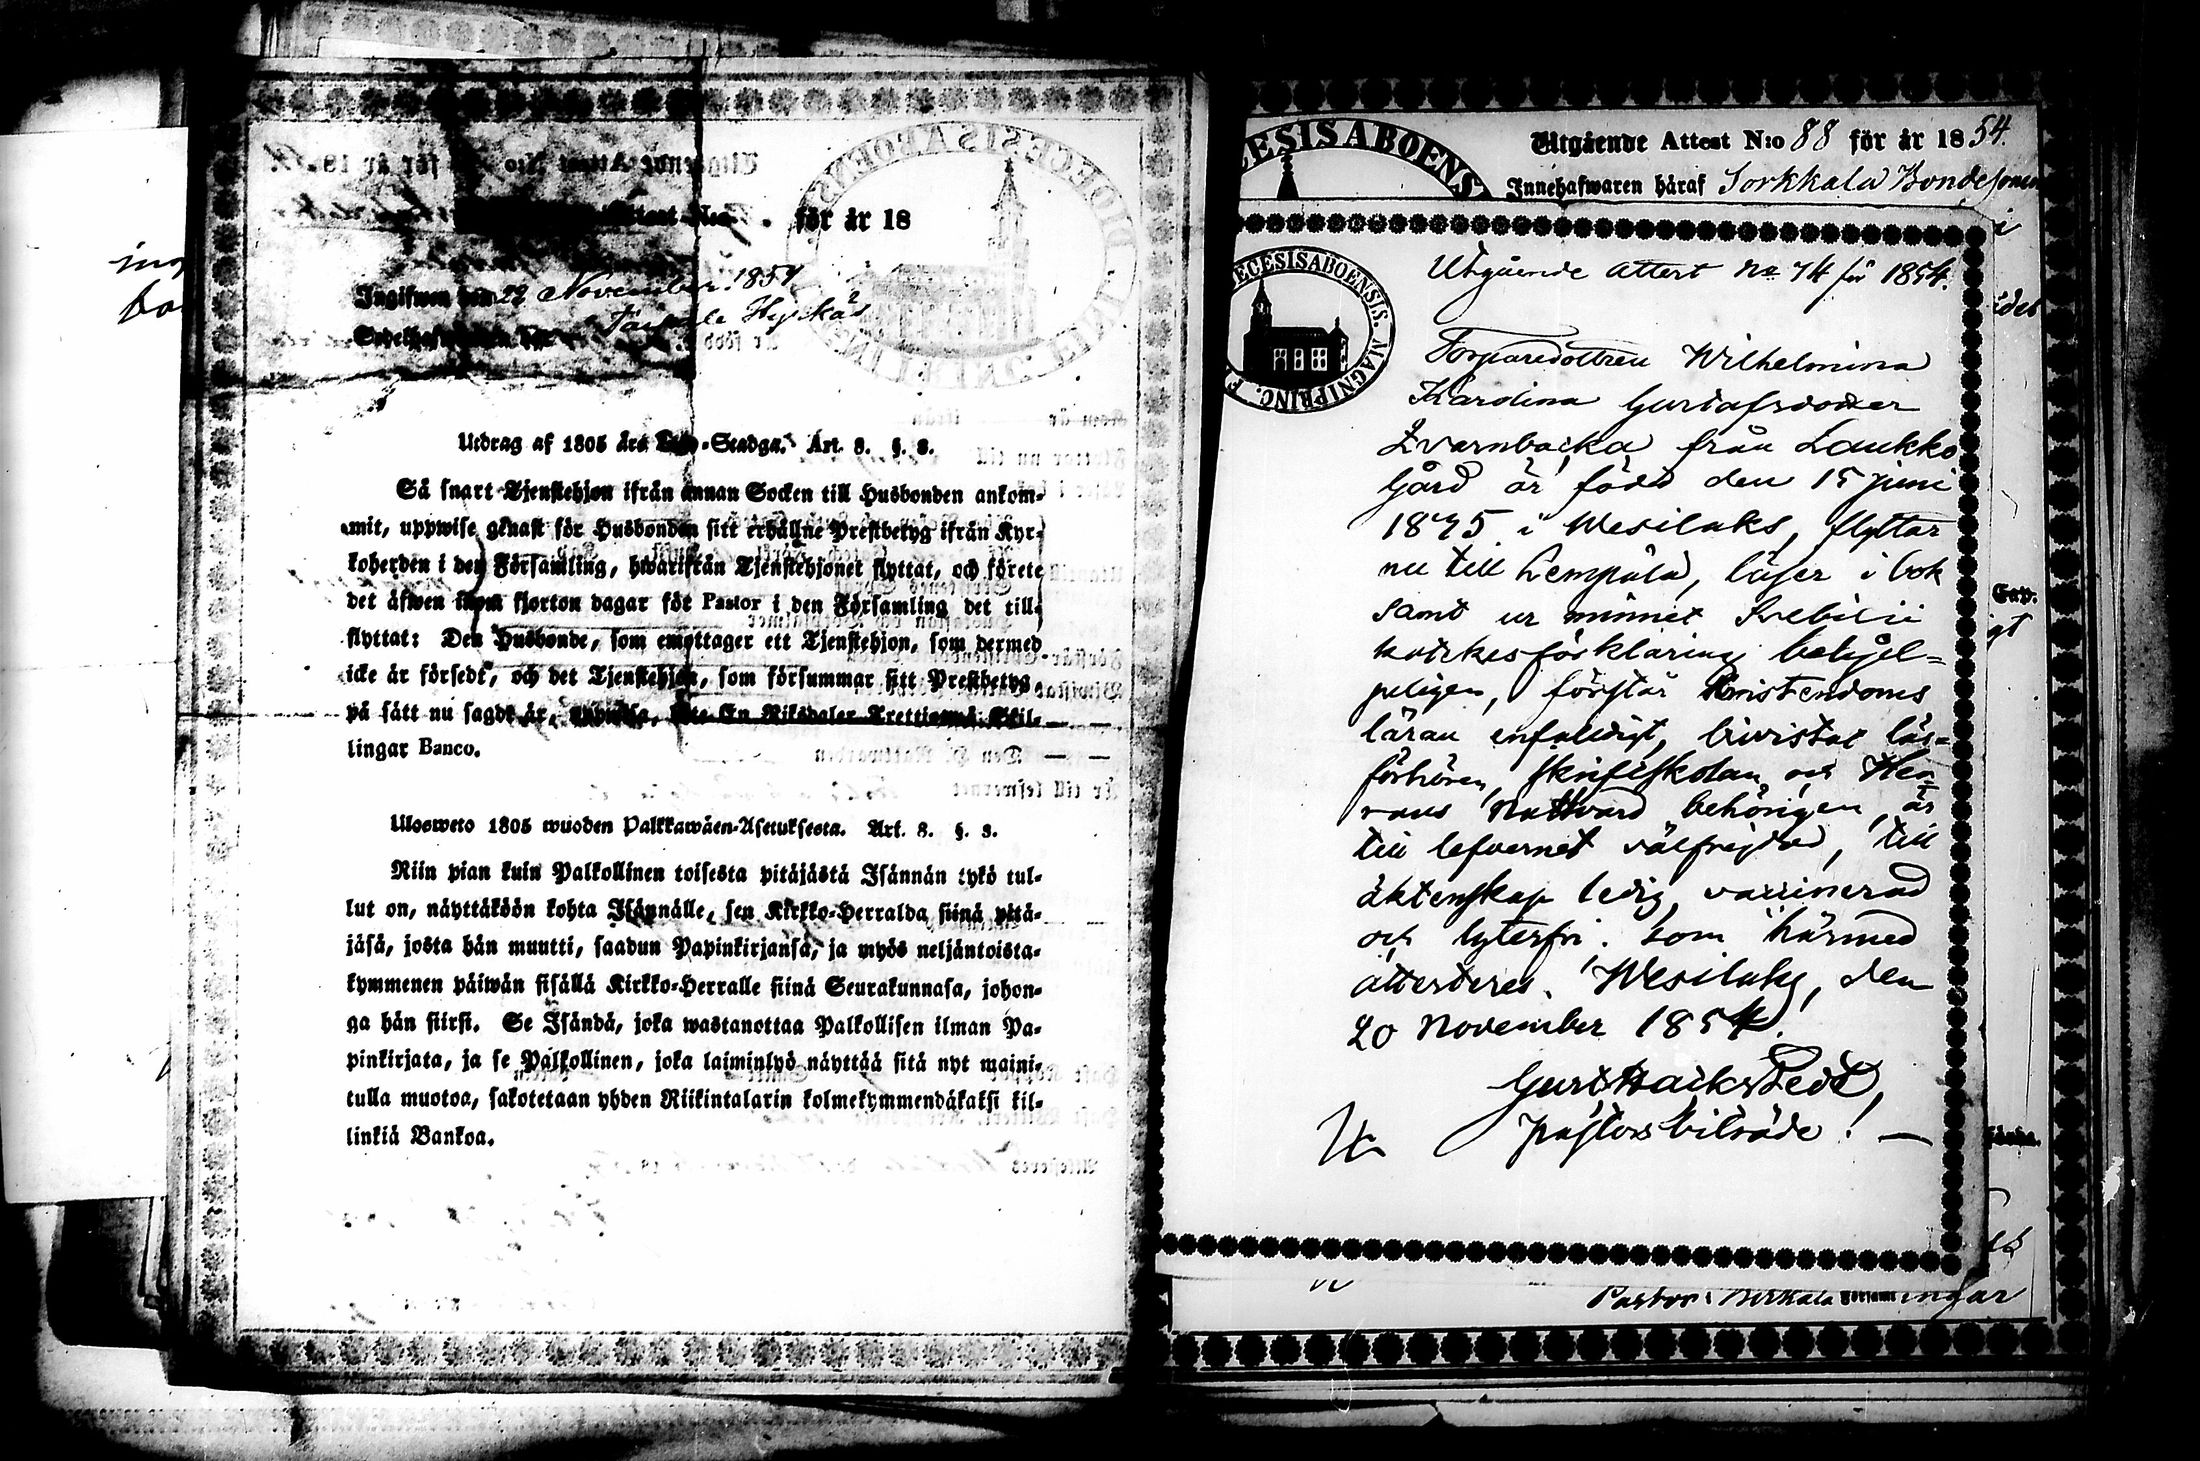 för år 18
Ingifwen den 22 November 1854
Utdrag af 1805 års Lego-Stadga. Art. 8. §. 3.
Så snart Tjenstehjon ifrån annan Socken till Husbonden ankom-
mit, uppwise genast för Husbonden sitt erhållne Prestbetyg ifrån Kyr-
koherden i den Församling, hwarifrån Tjenstehjonet flyttat, och förete
det äfwen inom fjorton dagar för Pastor i den Församling det till-
flyttat: Den Husbonde, som emottager ett Tjenstehjon, som dermed
icke är försedt, och det Tjenstehjon, som försummar sitt Prestbetyg
på sätt nu sagdt är, uppwisa, böte En Riksdaler Trettiotwå Skil-
lingar Banco.
Ulosweto 1805 wuoden Palkkawäen-Asetuksesta. Art. 8. §. 3.
Niin pian kuin Palkollinen toisesta pitäjästä Isännän tykö tul-
lut on, näyttäköön kohta Isännälle, sen Kirkko-Herralda siinä pitä-
jäsä, josta hän muutti, saadun Papinkirjansa, ja myös neljäntoista-
kymmenen päiwän sisällä Kirkko-Herralle siinä Seurakunnasa, johon-
ga hän siirsi. Se Isändä, joka wastanottaa Palkollisen ilman Pa-
pinkirjata, ja se Palkollinen, joka laiminlyö näyttää sitä nyt maini-
tulla muotoa, sakotetaan yhden Riikintalarin kolmekymmendäkaksi kil-
linkiä Bankoa.
Utgående Attest N:o 88 för år 1854.
Innehafwaren häraf Sorkkala Bondesonen
ECESIS ABOENS
Utgående attest No 74 för 1854.
ECESIS ABOENSIS. MAGNI PRINC. F
Torparedottren Wilhelmina
Karolina Gustafsdotter
Qvarnbacka från Laukko
Gård är född den 15 juni
1835 i Wesilaks, flyttar
nu till Lempälä, läser i bok
samt ur minnet Svebilii
katekesförklaring behjel-
peligen, förstår Kristendoms
läran enfaldigt, bivistat läs-
förhören, skriftskolan och Her-
rans Nattvard behörigen, är
till lefvernet välfrejdad, till
äktenskap ledig, vaccinerad
och lyterfri. Som härmed
attesteres. Wesilaks, den
20 November 1854.
Gust Hackstedt,
pastorsbiträde! —
Pastor i Birkala